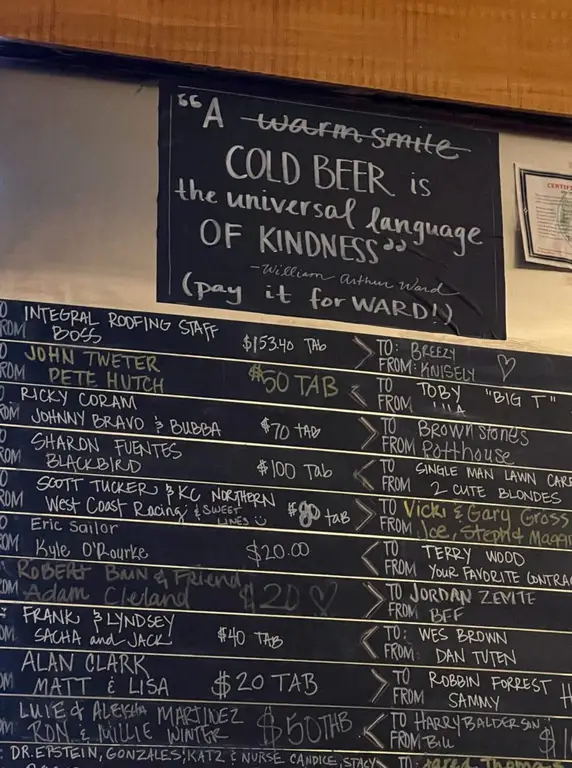 "A ~~warm smile~~
COLD BEER is
the universal language
OF KINDNESS"
-William Arthur Ward
(pay it forWARD!)
CERTIFI
INTEGRAL ROOFING STAFF
ROM BOSS $153.40 TAB
JOHN TWETER
ROM PETE HUTCH $50 TAB
RICKY CORAM
ROM JOHNNY BRAVO & BUBBA $70 TAB
SHARON FUENTES
ROM BLACKBIRD $100 Tab
SCOTT TUCKER & KC NORTHERN
West Coast Racing & SWEET LINES $80 tab
Eric Sailor
ROM Kyle O'Rourke $20.00
ROBERT BAIN & Friend
ROM Adam Cleland $20
FRANK & LYNDSEY
OM SACHA and JACK $40 TAB
ALAN CLARK
OM MATT & LISA $20 TAB
LUIE & ALEISHA MARTINEZ
OM RON & MILLIE WINTER $50 TAB
: DR. EPSTEIN, GONZALES, KATZ & NURSE CANDICE, STACY
TO: BREEZY
FROM: KNISELY
TO TOBY "BIG T"
FROM
TO BROWNSTONES
FROM Potthouse
TO SINGLE MAN LAWN CARE
FROM 2 CUTE BLONDES
TO Vicki & Gary Gross
FROM Joe, Steph & Maggi
TO TERRY WOOD
FROM YOUR FAVORITE CONTRAC
TO JORDAN ZEVITE
FROM BFF
TO: WES BROWN
FROM: DAN TUTEN
TO ROBBIN FORREST H
FROM SAMMY
TO HARRY BALDERSON
FROM Bill $1
TO: Jared Thomas